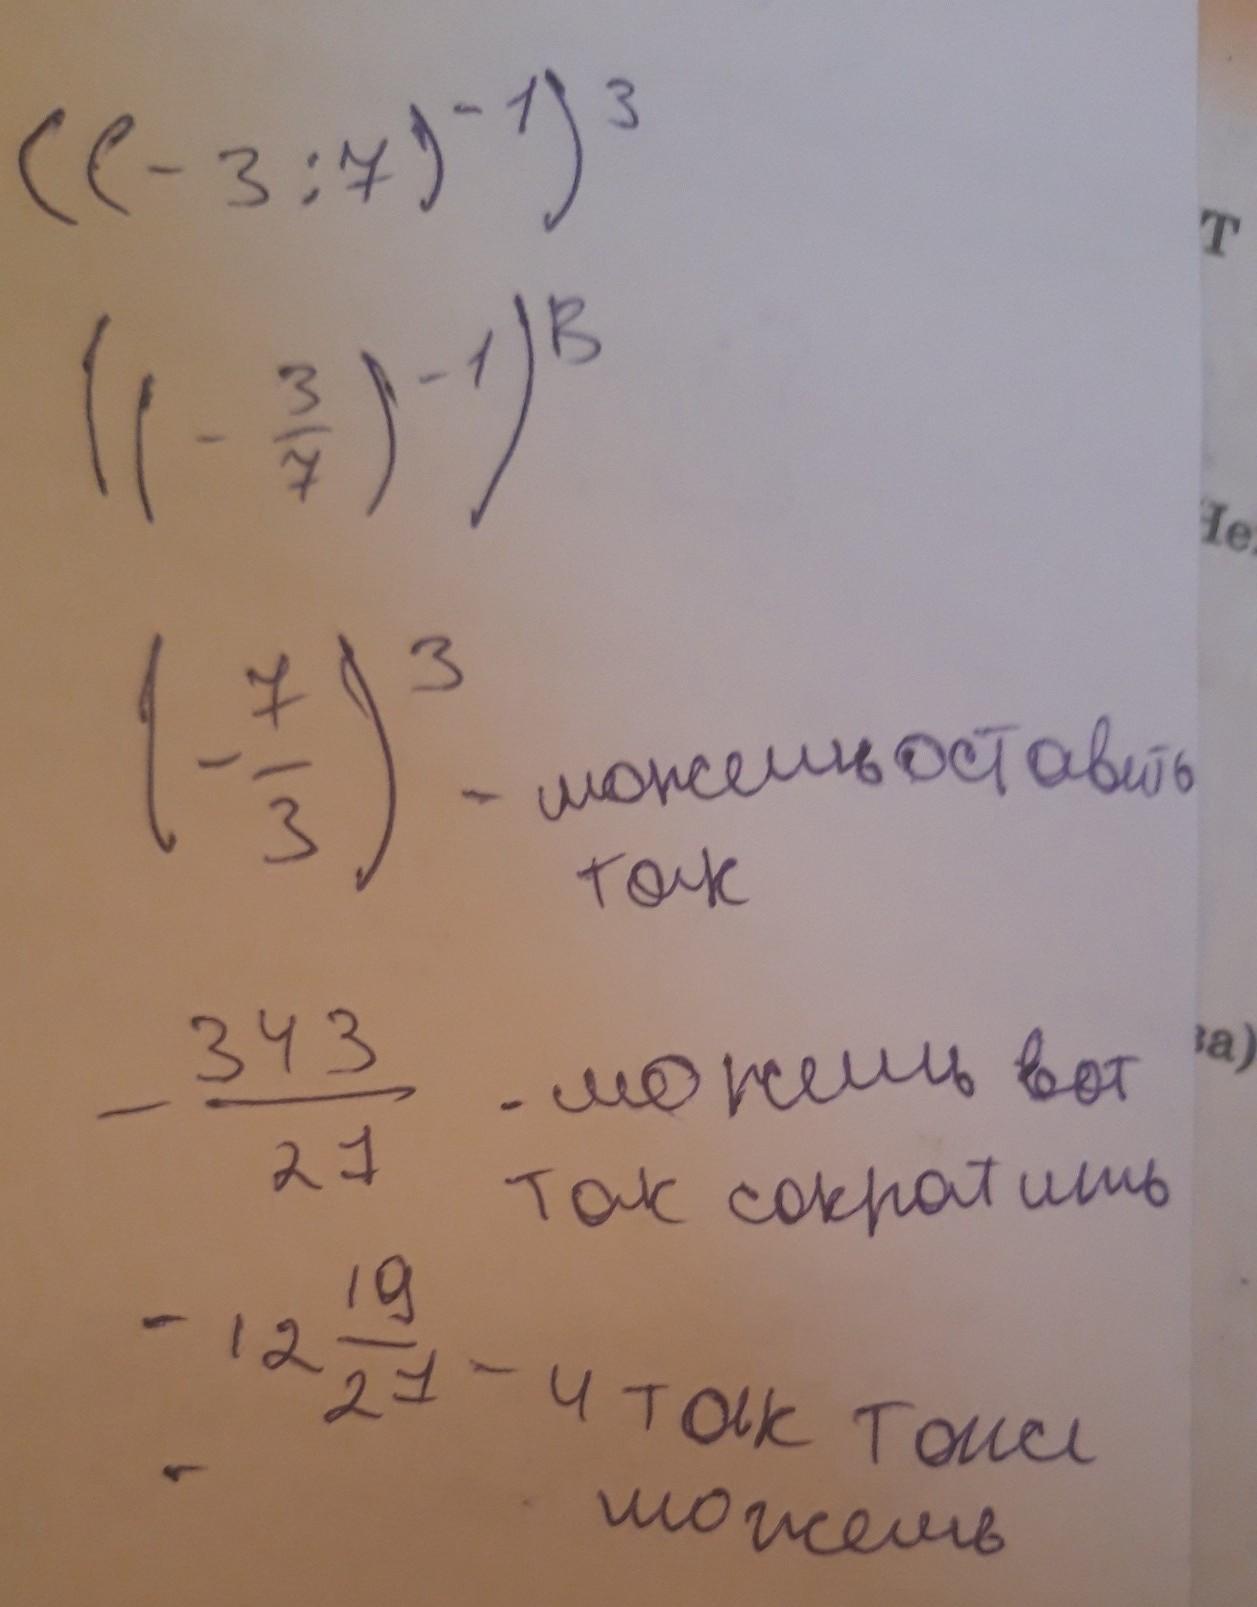 ((-3:7)^-1)^3
((-3/7)^-1)^3
(-7/3)^3 - можешь оставить
так
-343/27 - можешь вот
так сократишь
-12 19/27 - и так тоже
-
можешь
Т
Не
ва)